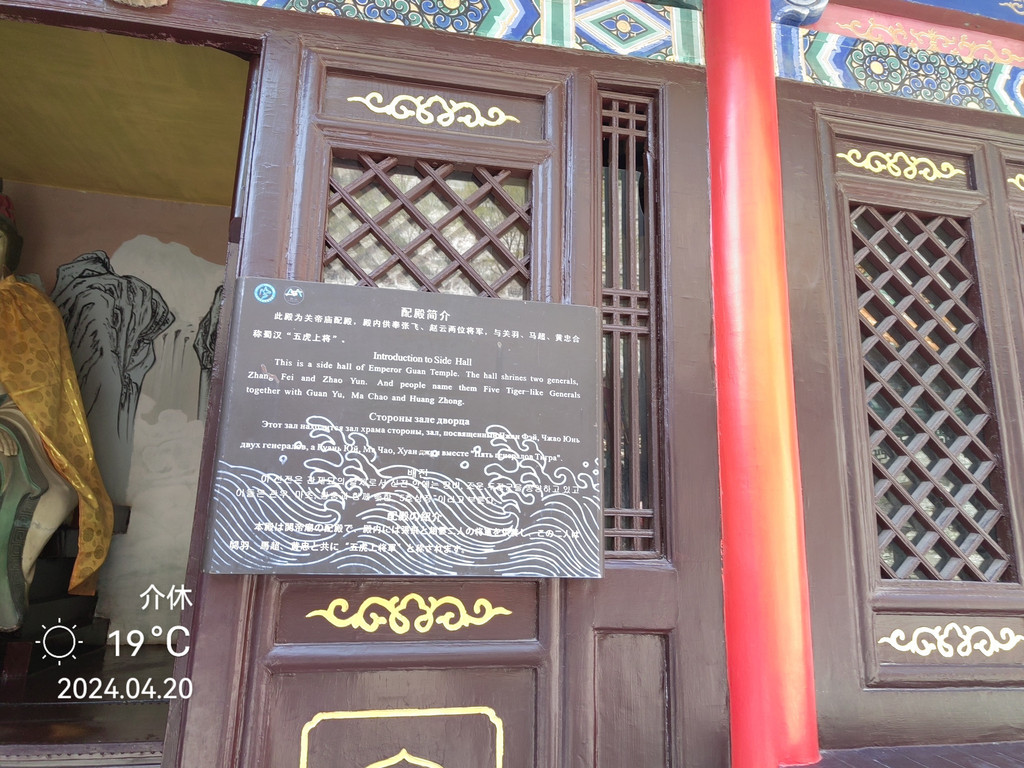 配殿简介
此殿为关帝庙配殿，殿内供奉张飞、赵云两位将军，与关羽、马超、黄忠合
称蜀汉“五虎上将”。
Introduction to Side Hall
This is a side hall of Emperor Guan Temple. The hall shrines two generals,
Zhang Fei and Zhao Yun. And people name them Five Tiger-like Generals
together with Guan Yu, Ma Chao and Huang Zhong.
Стороны зале дворца
Этот зал находится зал храма стороны, зал, посвященный Чжан Фэй, Чжао Юнь
двух генералов, а Гуань Юй, Ма Чао, Хуан джун вместе "Пять генералов Тигра".
배전
配殿の紹介
本殿は関帝廟の配殿で、殿内には張飛と趙雲二人の将軍を供養し、この二人は
関羽、馬超、黄忠と共に“五虎上将軍”と称されます。
介休
19°C
2024.04.20